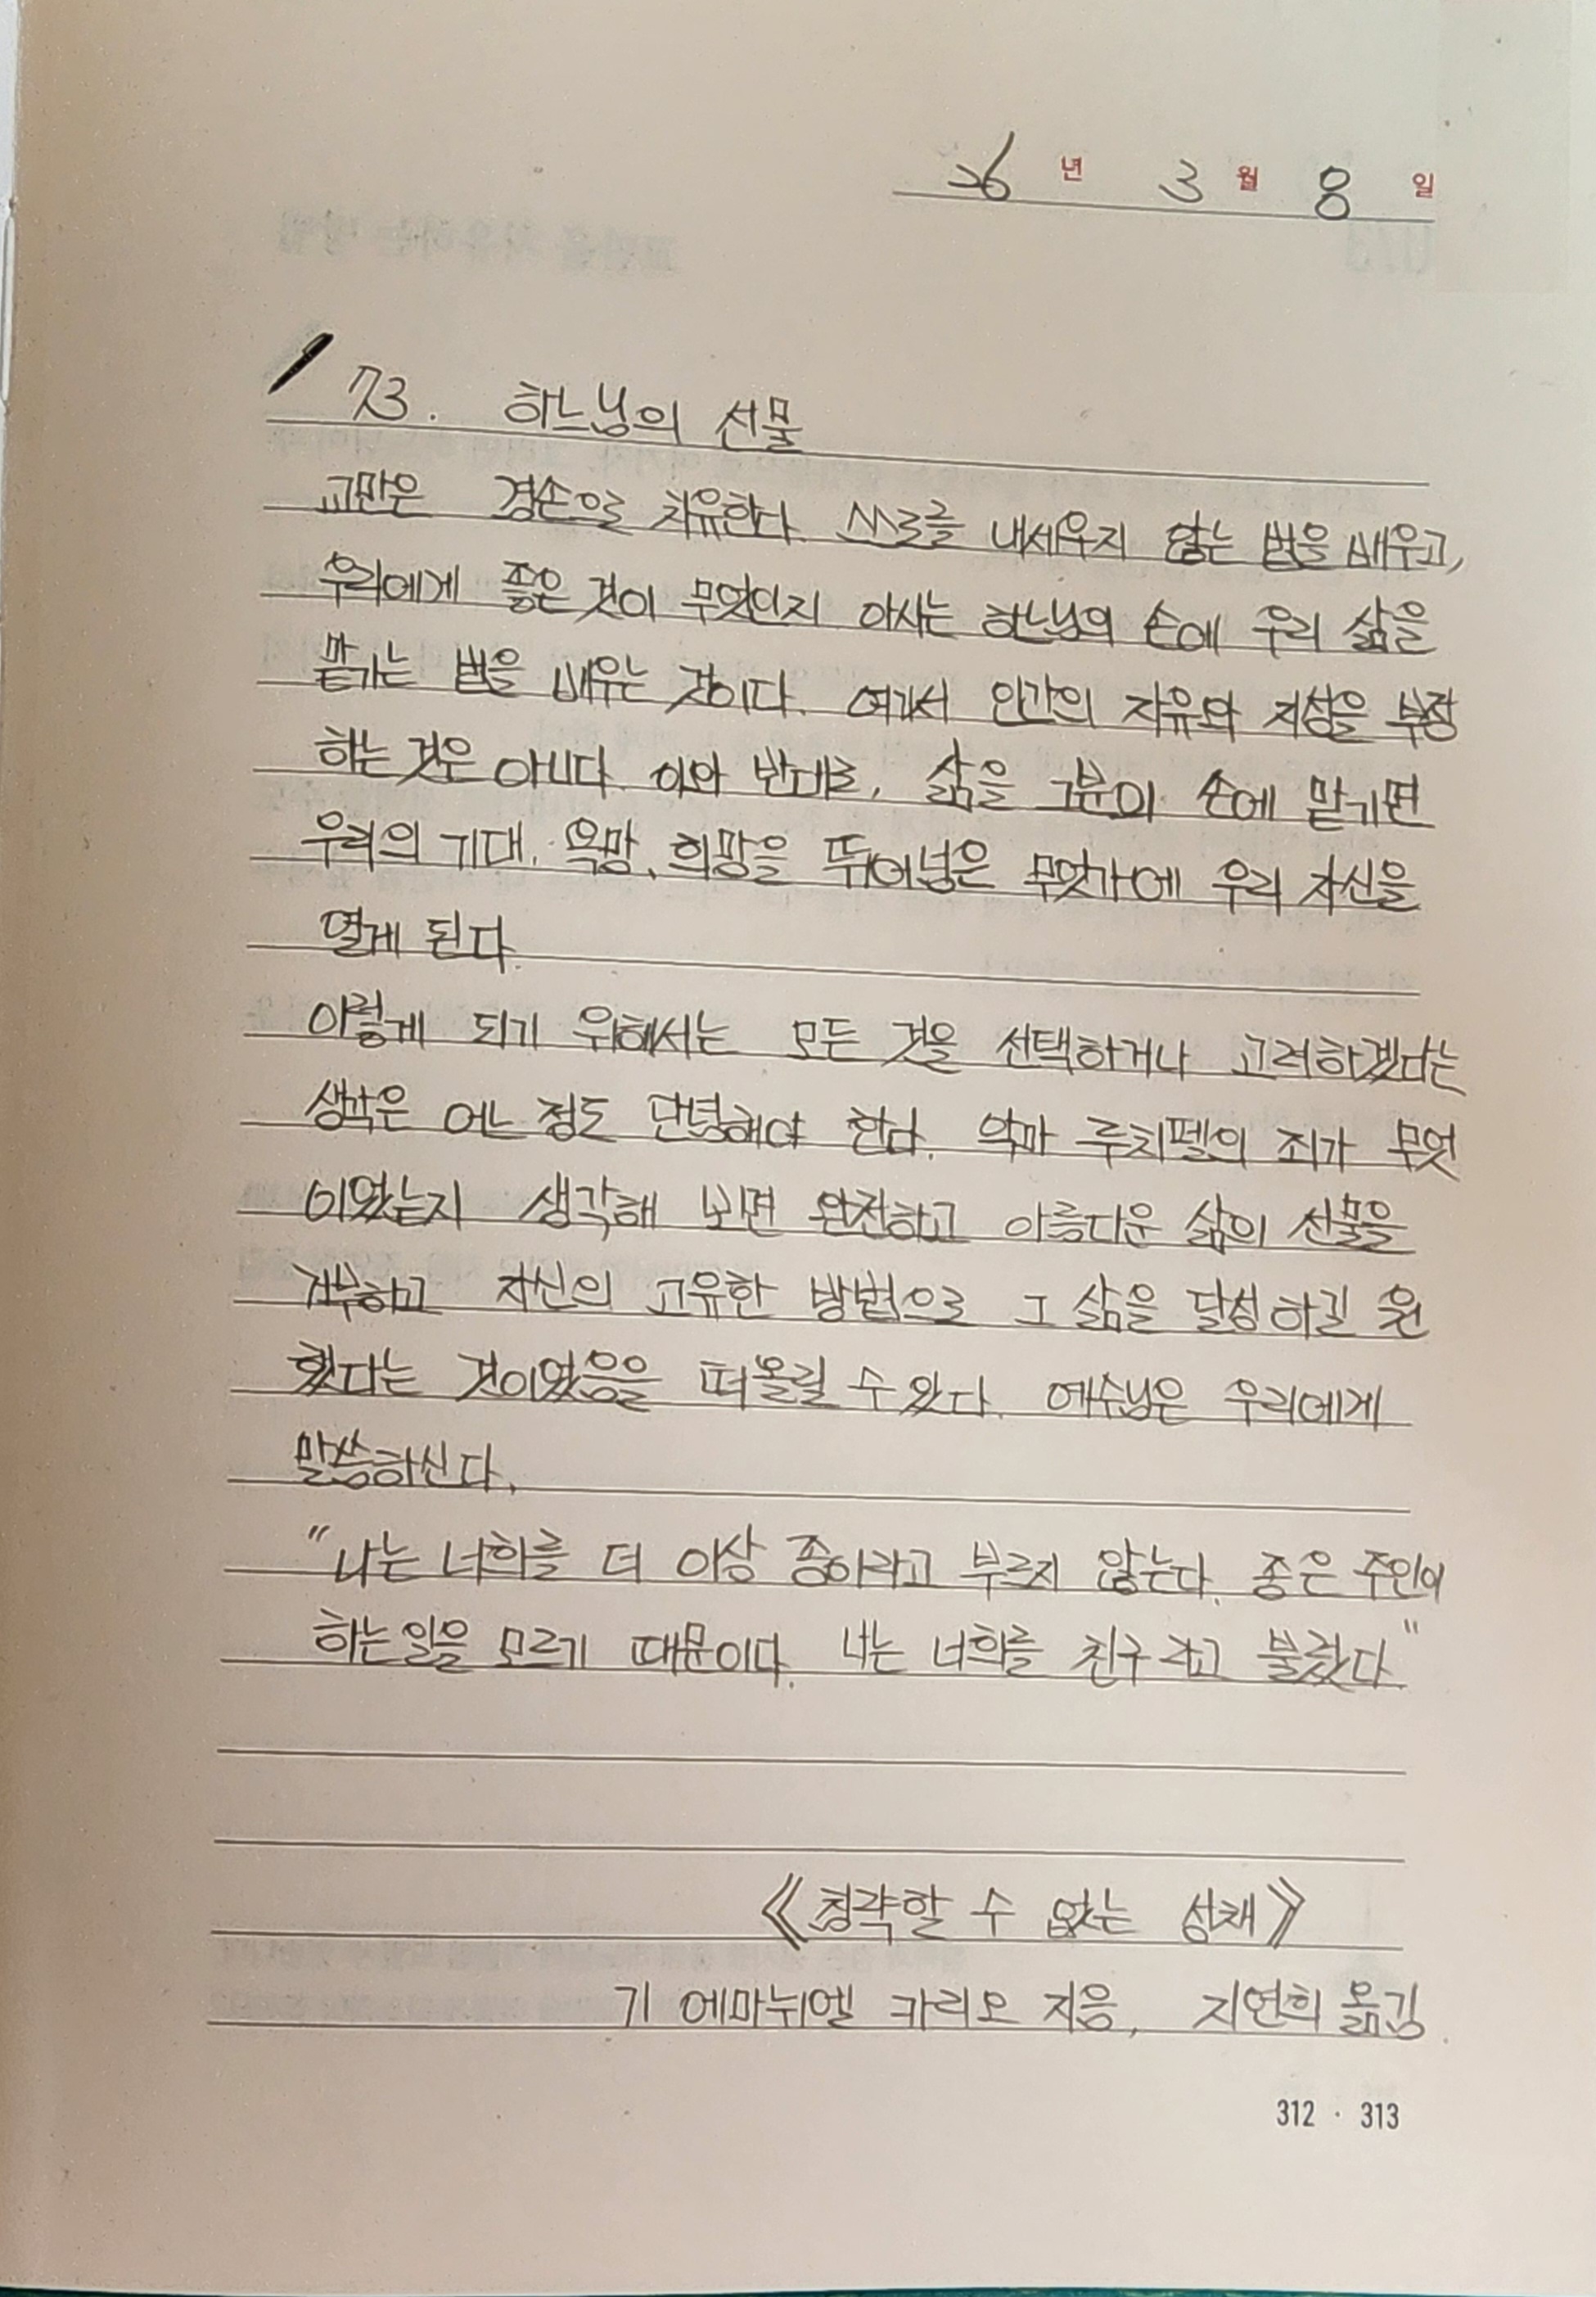 26 년 3 월 8 일
73. 하느님의 선물
교만은 겸손으로 치유한다. 스스로를 내세우지 않는 법을 배우고,
우리에게 좋은 것이 무엇인지 아시는 하느님의 손에 우리 삶을
맡기는 법을 배우는 것이다. 여기서 인간의 자유와 지성을 부정
하는 것은 아니다. 이와 반대로, 삶을 그분의 손에 맡기면
우리의 기대, 욕망, 희망을 뛰어넘은 무엇가에 우리 자신을
열게 된다.
이렇게 되기 위해서는 모든 것을 선택하거나 고려하겠다는
생각은 어느 정도 단념해야 한다. 악마 루치펠의 죄가 무엇
이었는지 생각해 보면 완전하고 아름다운 삶의 선물을
거부하고 자신의 고유한 방법으로 그 삶을 달성하길 원
했다는 것이었음을 떠올릴 수 있다. 예수님은 우리에게
말씀하신다.
"나는 너희를 더 이상 종이라고 부르지 않는다. 종은 주인이
하는 일을 모르기 때문이다. 나는 너희를 친구라고 불렀다"
《침략할 수 없는 성채》
기 에마뉘엘 카리오 지음, 지연희 옮김.
312 · 313